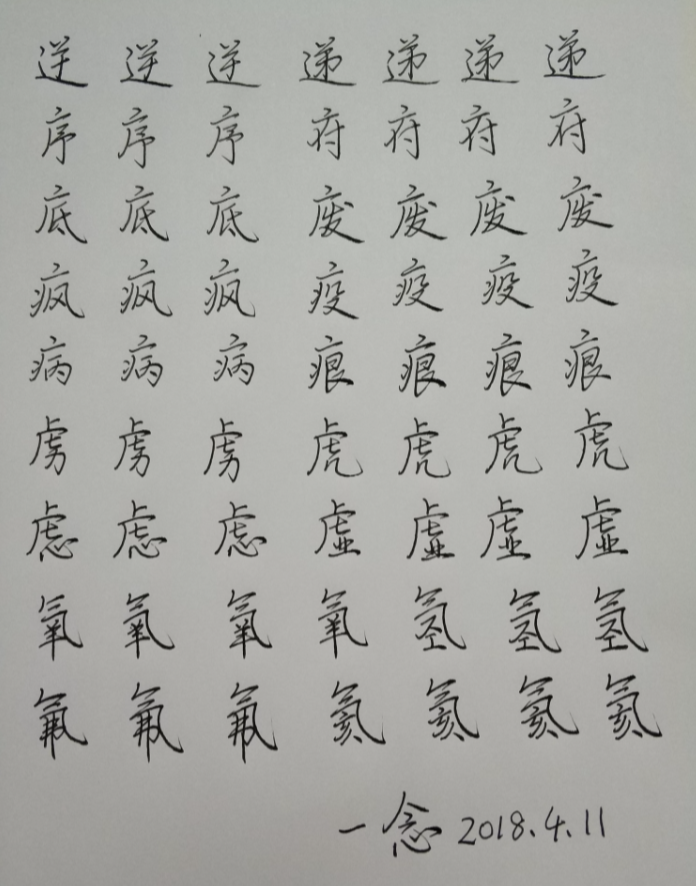 逆 逆 逆 递 递 递 递
序 序 序 府 府 府 府
底 底 底 废 废 废 废
疯 疯 疯 疫 疫 疫 疫
病 病 病 痕 痕 痕 痕
虏 虏 虏 虎 虎 虎 虎
虑 虑 虑 虚 虚 虚 虚
氧 氧 氧 氧 氢 氢 氢
氟 氟 氟 氦 氦 氦 氦
一念 2018.4.11